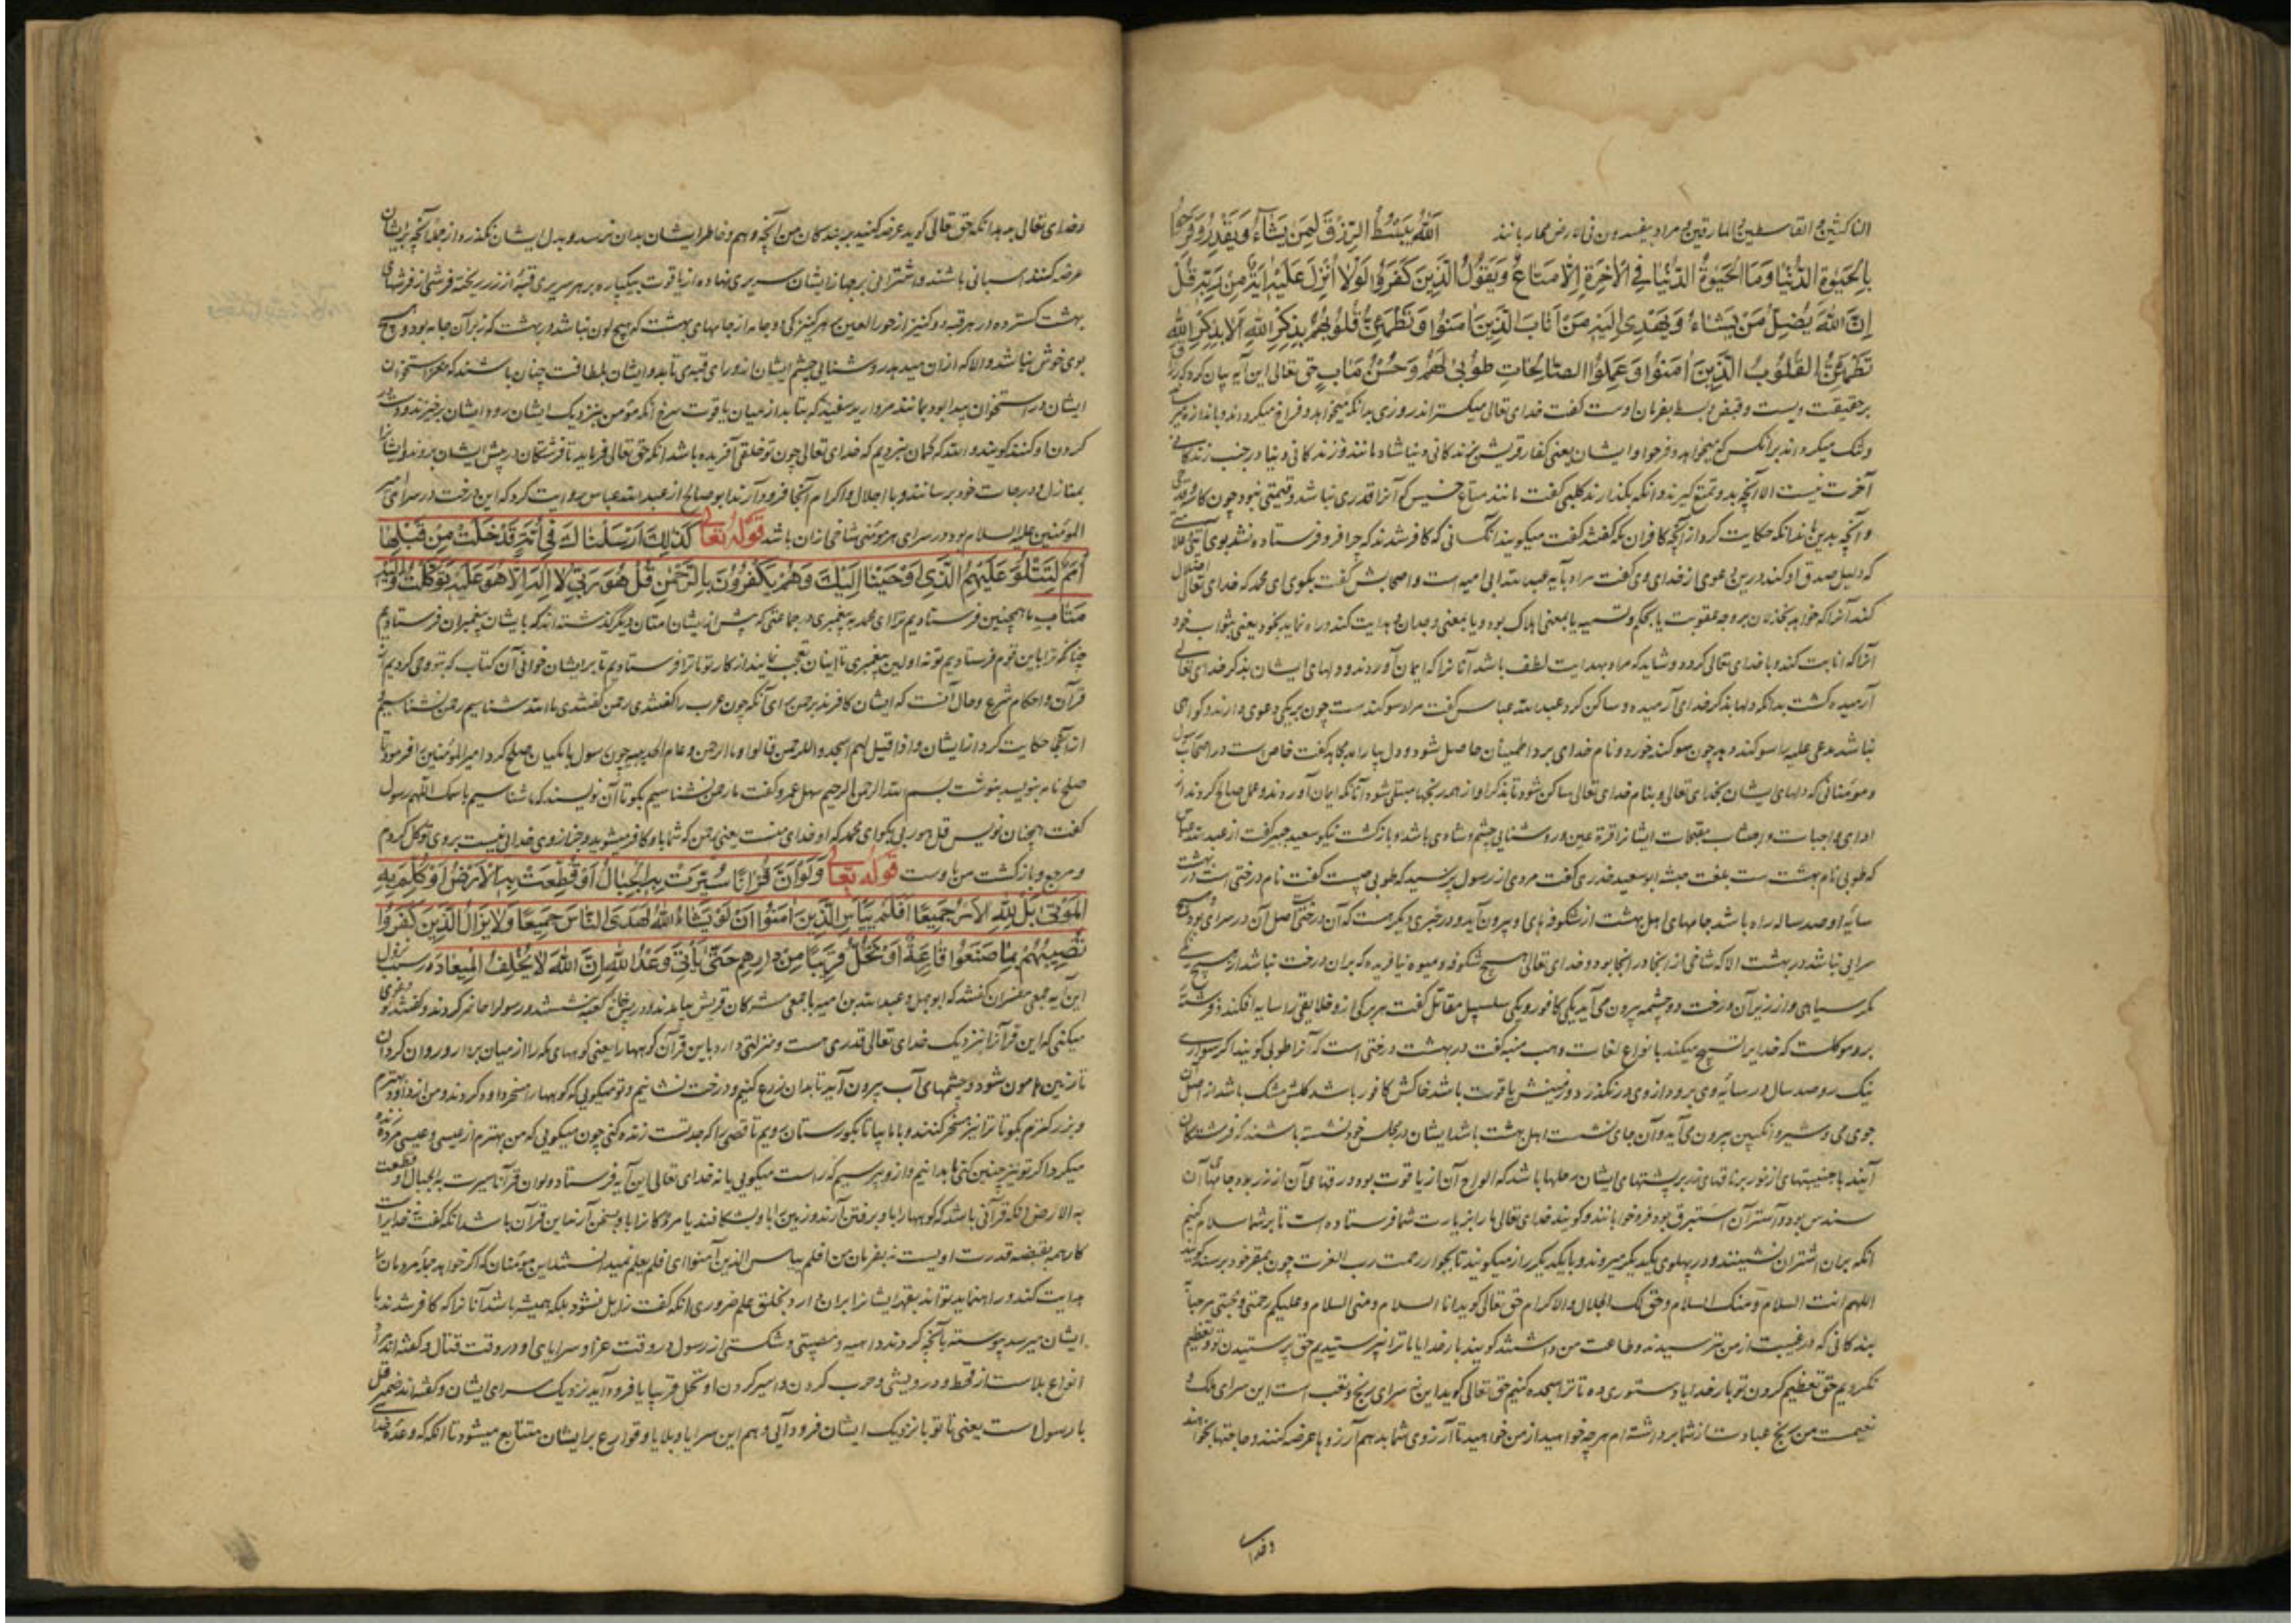 الناکثین و القاسطین و المارقین و مراد یفسدون فی الارض محاربانند اللَّهُ يَبْسُطُ الرِّزْقَ لِمَن يَشَاءُ وَيَقْدِرُ وَفَرِحُوا
بِالْحَيٰوةِ الدُّنْيَا وَمَا الْحَيٰوةُ الدُّنْيَا فِي الْاٰخِرَةِ اِلَّا مَتَاعٌ وَيَقُولُ الَّذِينَ كَفَرُوا لَوْلَا اُنْزِلَ عَلَيْهِ اٰيَةٌ مِنْ رَبِّهِ قُلْ
اِنَّ اللَّهَ يُضِلُّ مَنْ يَشَاءُ وَيَهْدِي اِلَيْهِ مَنْ اَنَابَ الَّذِينَ اٰمَنُوا وَتَطْمَئِنُّ قُلُوبُهُمْ بِذِكْرِ اللَّهِ اَلَا بِذِكْرِ اللَّهِ
تَطْمَئِنُّ الْقُلُوبُ الَّذِينَ اٰمَنُوا وَعَمِلُوا الصَّالِحَاتِ طُوبٰى لَهُمْ وَحُسْنُ مَاٰبٍ حق تعالی این آیه بیان کرد که
بر حقیقت ویست و قبض و بسط بفرمان اوست گفت خدای تعالی میکستراند روزی بدانکه میخواهد و فراخ میکرداند و باندازه
و تنک میکرداند بر انکس که میخواهد و فرحوا و ایشان یعنی کفار قریش بزندکانی دنیا شاد مانند و زندکانی دنیا در جنب زندکانی
آخرت نیست الا انچه بدو تمتع کیرند و انکه بکذارند کلبی کفت مانند متاع خسیس که آنرا قدری نباشد و قیمتی نبود چون
و آنچه بدین ماند انکه حکایت کرد از آنچه کافران مکه کفتند کفت میکویند آنکسانی که کافر شدند که چرا فرو فرستاده نشد بوی
که دلیل صدق او کند درین دعوی از خدای وی کفت مراد بآیه عبدالله ابی امیه است و اصحابش کفت بکوی ای محمد که خدای تعالی اضلال
کند آنرا که خواهد بخذلان بر وجه عقوبت یا بحکم و تسمیه یا بمعنی اهلاک بود و یا بمعنی وجدان و هدایت کند و راه نماید بخود یعنی بثواب خود
آنرا که انابت کند و با خدای تعالی کردد و شاید که مراد بهدایت لطف باشد آنانرا که ایمان آوردند و دلهای ایشان بذکر خدای تعالی
آرمیده کشت بدانکه دلها بذکر خدای آرمیده و ساکن کردد عبدالله عباس کفت مراد سوکند است چون بر یکی دعوی دارند و کواهی
نباشد مدعی علیه را سوکند دهد چون سوکند خورد و نام خدای برد اطمینان حاصل شود و دل بیارامد مجاهد کفت خاص است در اصحاب رسول
و مومنانی که دلهای ایشان بخدای تعالی و بنام خدای تعالی ساکن شود تا بذکر او از همه رنجها متسلی شود آنانکه ایمان آوردند و عمل صالح کردند از
ادای واجبات و اجتناب مقبحات ایشانرا قرة عین و روشنایی چشم و شادی باشد و بازکشت نیکو سعید جبیر کفت از عبدالله عباس
که طوبی نام بهشت است بلغت حبشه ابو سعید خدری کفت مردی از رسول پرسید که طوبی چیست کفت نام درختی است در بهشت
سایه او صد ساله راه باشد جامهای اهل بهشت از شکوفه های او بیرون آید و در خبری دیکر هست که آن درختی است اصل آن در سرای من بود
سرایی نباشد در بهشت الا که شاخی از انجا در انجا بود و خدای تعالی هیچ شکوفه و میوه نیافریده که بر آن درخت نباشد از هیچ رنکی
مکر سیاهی و از زیر آن درخت دو چشمه بیرون می آید یکی کافور و یکی سلسبیل مقاتل کفت هر برکی ازو خلایقی را سایه افکند و فرشتهٔ
برو موکلست که خدایرا تسبیح میکند بانواع لغات وهب منبه کفت در بهشت درختی است که آنرا طوبی کویند اکر سواری
نیک رو صد سال در سایه وی برود از وی در نکذرد و زمینش یاقوت باشد خاکش کافور باشد کلش مشک باشد از اصل آن
جوی می و شیر و انکبین بیرون می آید و آن جای نشست اهل بهشت باشد ایشان در مجلس خود نشسته باشند که فرشتکان
آیند با جنیبتهای از نور بر ناقهای بر پشتهای ایشان رحلها باشد که الواح آن از یاقوت بود و رقهای آن از زر بود جامهای آن
سندس بود و آستر آن استبرق بود فرو خوابانند و کویند خدای تعالی ما را بزیارت شما فرستاده است تا بر شما سلام کنیم
انکه بر آن اشتران نشینند و در پهلوی یکدیکر میروند و با یکدیکر راز میکویند تا بجوار رحمت رب العزت چون بمقر خود برسند کویند
اللهم انت السلام و منک السلام و حق لک الجلال و الاکرام حق تعالی کوید انا السلام و منی السلام و علیکم رحمتی و محبتی مرحبا
بندکانی که در غیبت از من بترسیدند و طاعت من داشتند کویند بار خدایا ما ترا نپرستیدیم حق پرستیدن تو و تعظیم
نکردیم حق تعظیم کردن تو بار خدایا دستوری ده تا ترا سجده کنیم حق تعالی کوید این نه سرای رنج و تعب است این سرای ملک و
نعیمست من رنج عبادت از شما برداشته ام هر چه خواهید از من خواهید تا آرزوی شما بدهم آرزوها عرضه کنند و حاجتها بخواهند
و خدای
و خدای تعالی بدهد انکه حق تعالی کوید عرضه کنید بر بندکان من آنچه وهم و خاطر ایشان بدان نرسد و بدل ایشان نکذرد و از جمله آنچه بر ایشان
عرضه کنند اسبانی باشند و اشترانی بر جهاز ایشان سریری نهاده از یاقوت بیکپاره بر هر سریری قبه از زر ریخته فرشی از فرشهای
بهشت کسترده در هر قبه دو کنیز از حور العین بر هر کنیزکی دو جامه از جامهای بهشت که هیچ لون نباشد در بهشت که نه بر آن جامه بود و هیچ
بوی خوش نباشد و الا که از آن میدمد روشنایی چشم ایشان از ورای قبه می تابد و ایشان بلطافت چنان باشند که مغز استخوان
ایشان در استخوان پیدا بود مانند مروارید سفید که بتابد از میان یاقوت سرخ انکه مومن بنزدیک ایشان رود ایشان برخیزند و دست
کردن او کنند کویند والله که کمان نبردیم که خدای تعالی چون تو خلقی آفریده باشد انکه حق تعالی فرماید تا فرشتکان در پیش ایشان بروند و ایشانرا
بمنازل و درجات خود برسانند و با اجلال و اکرام آنجا فرود آرند ابو صالح از عبدالله عباس روایت کرد که این درخت در سرای امیر
المومنین علیه السلام بود در سرای هر مومنی شاخی از آن باشد قَوْلُهُ تَعَالٰى كَذٰلِكَ اَرْسَلْنَاكَ فِي اُمَّةٍ قَدْ خَلَتْ مِنْ قَبْلِهَا
اُمَمٌ لِتَتْلُوَ عَلَيْهِمُ الَّذِي اَوْحَيْنَا اِلَيْكَ وَهُمْ يَكْفُرُونَ بِالرَّحْمٰنِ قُلْ هُوَ رَبِّي لَا اِلٰهَ اِلَّا هُوَ عَلَيْهِ تَوَكَّلْتُ وَاِلَيْهِ
مَتَابِ ما همچنین فرستادیم ترا ای محمد به پیغمبری در جماعتی که پیش از ایشان امتان دیکر کذشته اند که بایشان پیغمبران فرستادیم
چنانکه ترا باین قوم فرستادیم تو نه اولین پیغمبری تا اینان تعجب نمایند از کار تو تا ترا فرستادیم تا بر ایشان خوانی آن کتاب که بتو وحی کردیم از
قرآن و احکام شرع و حال آنست که ایشان کافرند برحمن برای آنکه چون عرب را کفتندی رحمن کفتندی ما الله شناسیم رحمن نشناسیم
از آنکه حکایت کرد از ایشان و اذا قیل لهم اسجدوا للرحمن قالوا و ما الرحمن و عام الحدیبیه چون رسول با مکیان صلح کرد امیر المومنین را فرمود تا
صلح نامه بنویسد بنوشت بسم الله الرحمن الرحیم سهل عمرو کفت ما رحمن نشناسیم بکو تا آن نویسند که ما شناسیم باسمک اللهم رسول
کفت همچنان نویس قل هو ربی بکو ای محمد که او خدای منست یعنی رحمن که شما باو کافر میشوید و جز از وی خدایی نیست بر وی توکل کردم
و مرجع و بازکشت من باوست قَوْلُهُ تَعَالٰى وَلَوْ اَنَّ قُرْاٰنًا سُيِّرَتْ بِهِ الْجِبَالُ اَوْ قُطِّعَتْ بِهِ الْاَرْضُ اَوْ كُلِّمَ بِهِ
الْمَوْتٰى بَلْ لِلَّهِ الْاَمْرُ جَمِيعًا اَفَلَمْ يَيْاَسِ الَّذِينَ اٰمَنُوا اَنْ لَوْ يَشَاءُ اللَّهُ لَهَدَى النَّاسَ جَمِيعًا وَلَا يَزَالُ الَّذِينَ كَفَرُوا
تُصِيبُهُمْ بِمَا صَنَعُوا قَارِعَةٌ اَوْ تَحُلُّ قَرِيبًا مِنْ دَارِهِمْ حَتّٰى يَاْتِيَ وَعْدُ اللَّهِ اِنَّ اللَّهَ لَا يُخْلِفُ الْمِيعَادَ در سبب نزول
این آیه جمعی مفسران کفتند که ابو جهل و عبدالله بن امیه با جمعی مشرکان قریش بیامدند و در پس خانه کعبه بنشستند و رسول را حاضر کردند و کفتند تو دعوی
میکنی که این قرآنرا نزدیک خدای تعالی قدری هست و منزلتی دارد باین قرآن کوهها را یعنی کوههای مکه را از میان بردار و روان کردان
تا زمین هامون شود و چشمهای آب بیرون آید تا بدان زرع کنیم و درخت نشانیم و تو میکویی که کوهها را مسخر داود کردند و من از داود بهترم
و بزرکترم بکو تا ترا نیز مسخر کنند و یا ما بیا تا بکورستان رویم تا قصی را که جد تست زنده کنی چون میکویی که من بهترم از عیسی و عیسی مرده زنده
میکرد اکر تو نیز چنین کنی ما بدانیم و ازو بپرسیم که راست میکویی یا نه خدای تعالی این آیه فرستاد و لو ان قرآنا سیرت به الجبال او قطعت
به الارض انکه قرآنی باشد که کوهها را باو برفتن آرند و زمین را باو بشکافند یا مردکانرا باو بسخن آرند این قرآن باشد انکه کفت خدایراست
کار همه بقبضه قدرت اویست نه بفرمان من افلم ییاس الذین آمنوا ای افلم یعلم نمیدانستند این مومنان که اکر خواهد جمله مردمانرا
هدایت کند و راه نماید تواند بقهر ایشانرا بر ایمان دارد بخلق علم ضروری انکه کفت زایل نشود بلکه همیشه باشد آنانرا که کافر شدند با
ایشان میرسد پیوسته بآنچه کردند داهیه و مصیبتی و شکستی از رسول در وقت غزا و سرایای او در وقت قتال و کفته اند
انواع بلاست از قحط و درویشی و حرب کردن و اسیر کردن او تحل قریبا یا فرود آید نزدیک سرای ایشان و کفته اند ضمیر تحل
با رسول است یعنی تا تو با نزدیک ایشان فرود آیی و هم این سرایا و بلایا و قوارع بر ایشان متتابع میشود تا انکه که وعده خدای